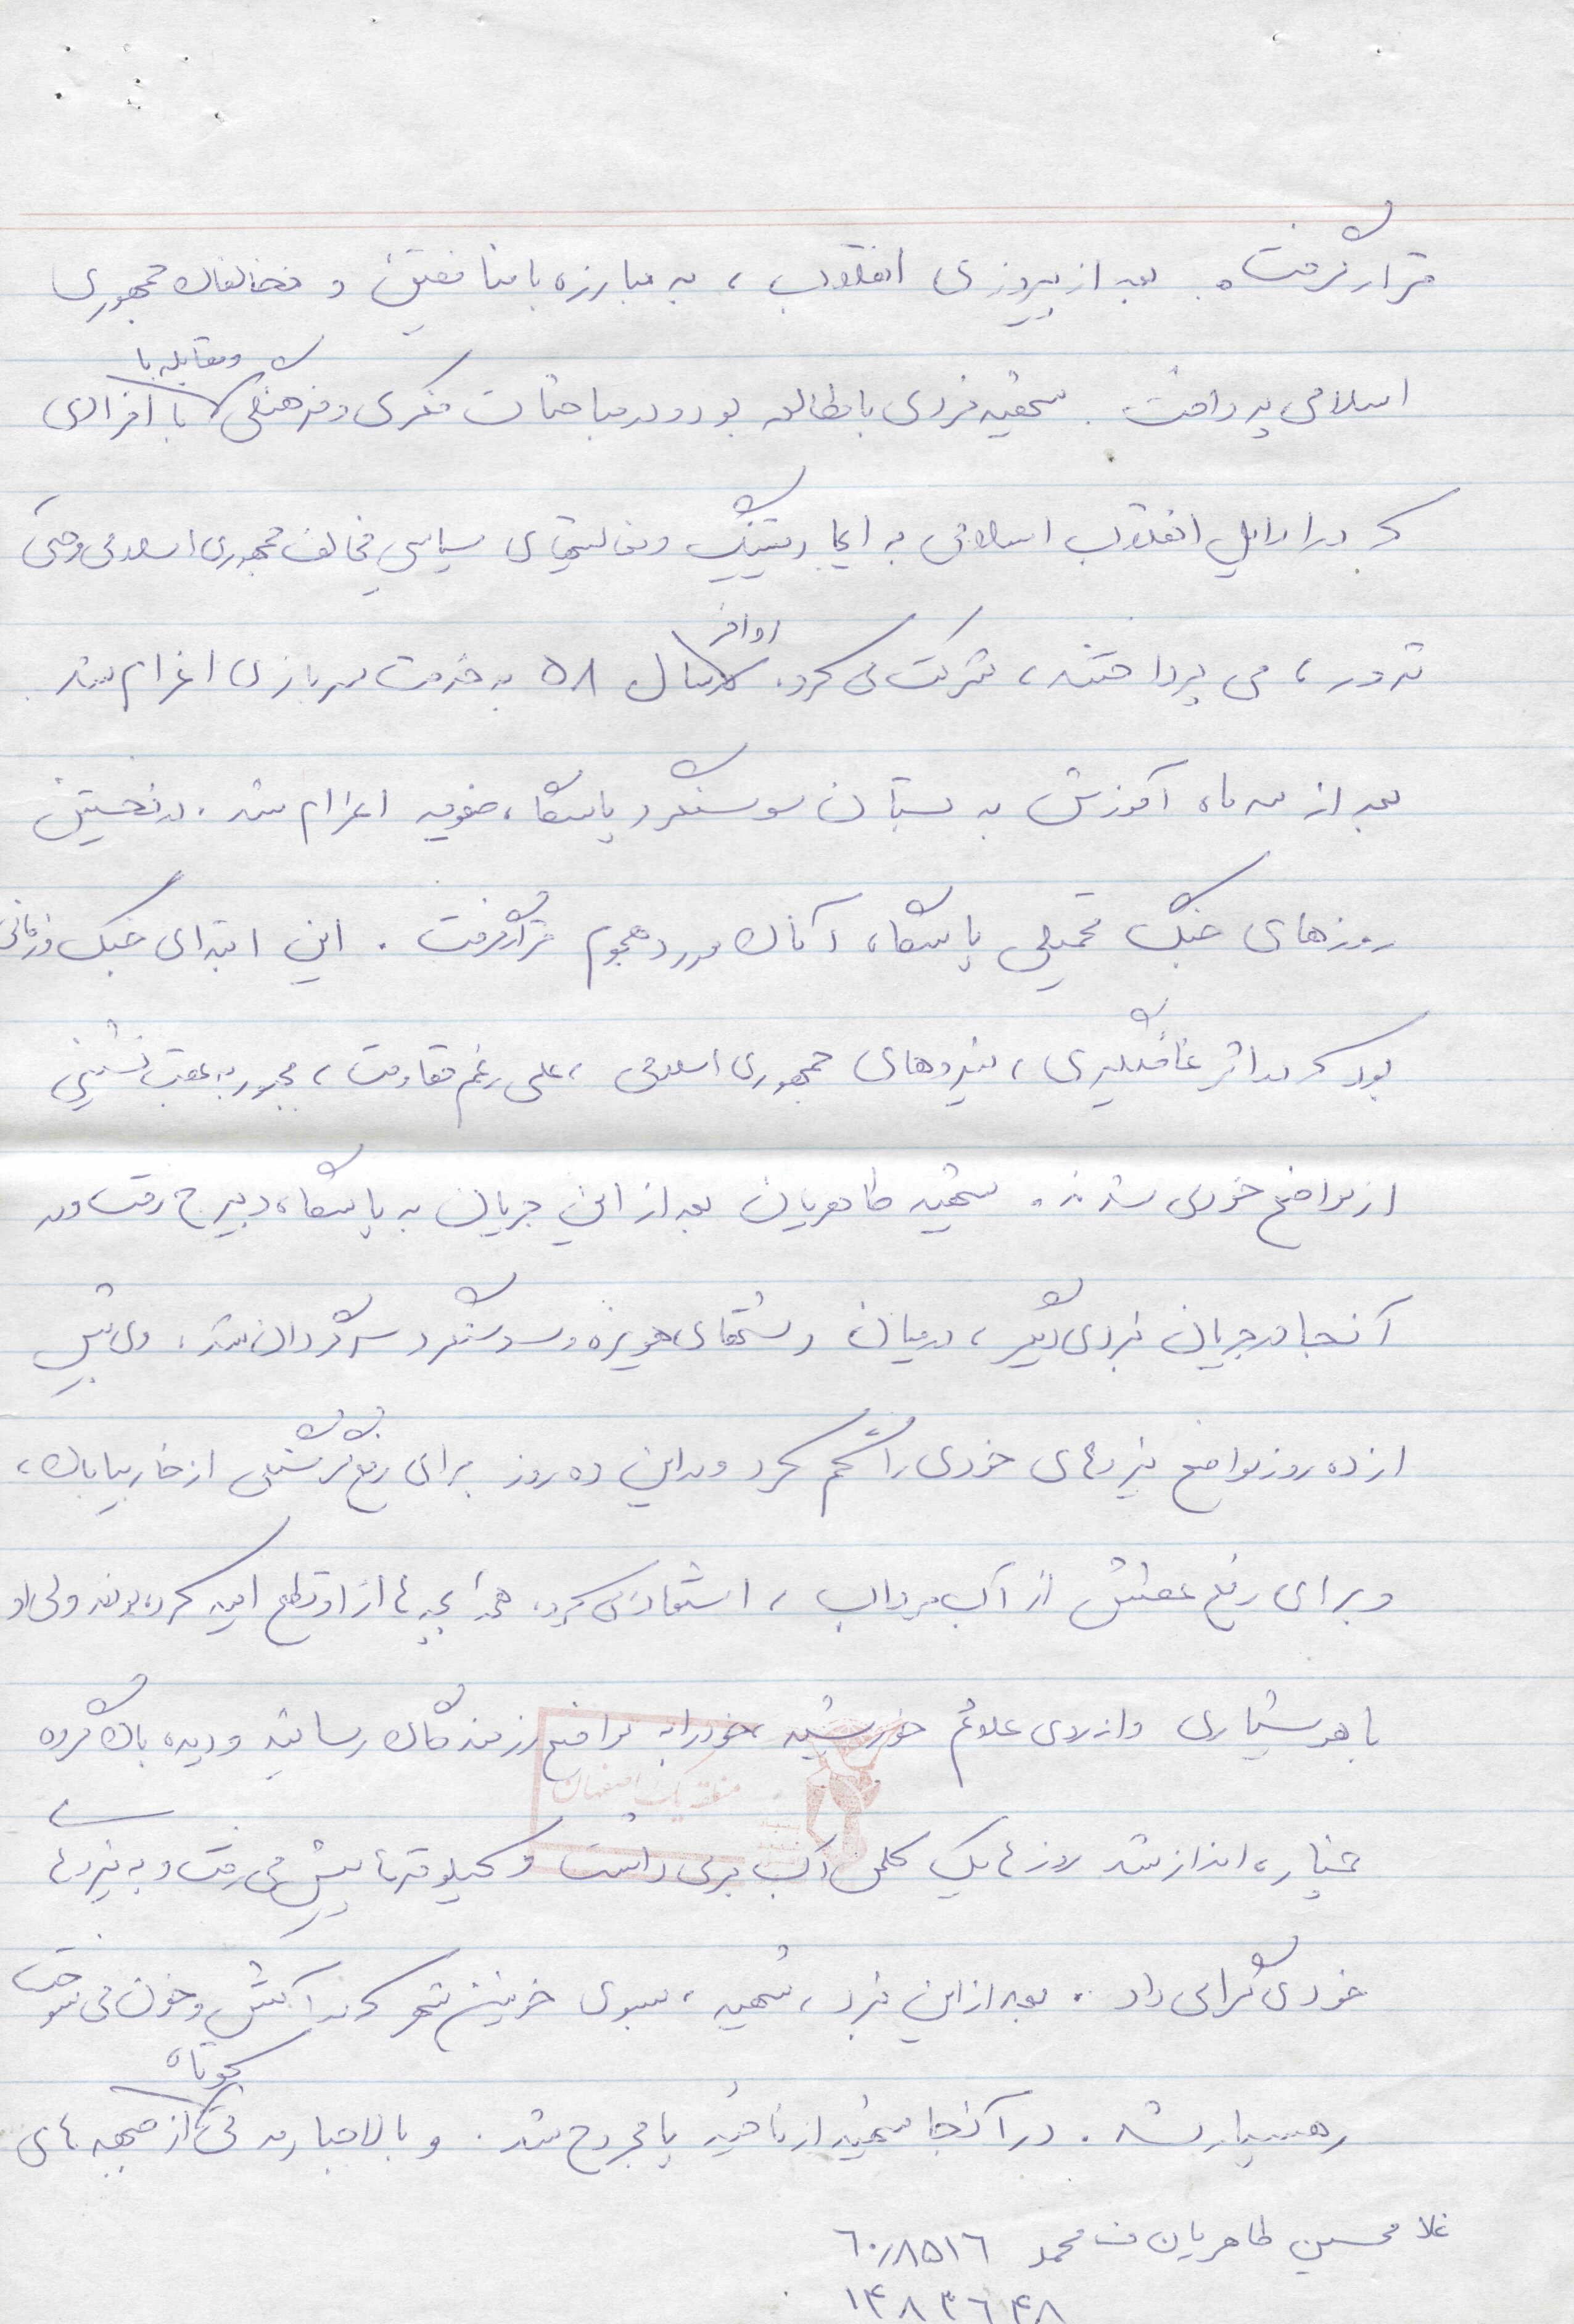 قرار گرفت. بعد از پیروزی انقلاب، به مبارزه با منافقین و مخالفان جمهوری
اسلامی پرداخت. شهید فردی با مطالعه بود و در مباحثات فکری و فرهنگی و مقابله با با افرادی
که در اوایل انقلاب اسلامی به ایجاد میتینگ و فعالیتهای سیاسی مخالف جمهوری اسلامی و حتی
ترور، می پرداختند، شرکت می کرد. اواخر سال ۵۸ به خدمت سربازی اعزام شد.
بعد از سه ماه آموزش به بستان سوسنگرد پاسگاه صفویه اعزام شد. در نخستین
روزهای جنگ تحمیلی پاسگاه آنان مورد هجوم قرار گرفت. این ابتدای جنگ و زمانی
بود که در اثر غافلگیری، نیروهای جمهوری اسلامی، علی رغم مقاومت، مجبور به عقب نشینی
از مواضع خودی شدند. شهید طاهریان بعد از این جریان به پاسگاه دبرج رفت و در
آنجا در جریان نبردی دیگر، در میان دشتهای هویزه و سوسنگرد سرگردان شد. وی بیش
از ده روز مواضع نیروهای خودی را گم کرد و در این ده روز برای رفع گرسنگی از خار بیابان،
و برای رفع عطش از آب مرداب، استفاده می کرد. همه بچه ها از او قطع امید کرده بودند ولی او
با هوشیاری و از روی علائم خورشید، خود را به مواضع رزمندگان رسانید و دیده بان گروه
خمپاره انداز شد روزها یک کلمن آب برمی داشت و کیلومترها پیش می رفت و به نیروهای
خودی گرای داد. بعد از این نبرد، شهید، بسوی خونین شهر که در آتش و خون می سوخت
رهسپار شد. در آنجا شهید از ناحیه پا مجروح شد. و بالاجبار مدتی کوتاه از جبهه های
غلامحسین طاهریان ف محمد ۶۰/۸۵۱۶
۱۴۸۳۶۴۸
منطقه یک اصفهان